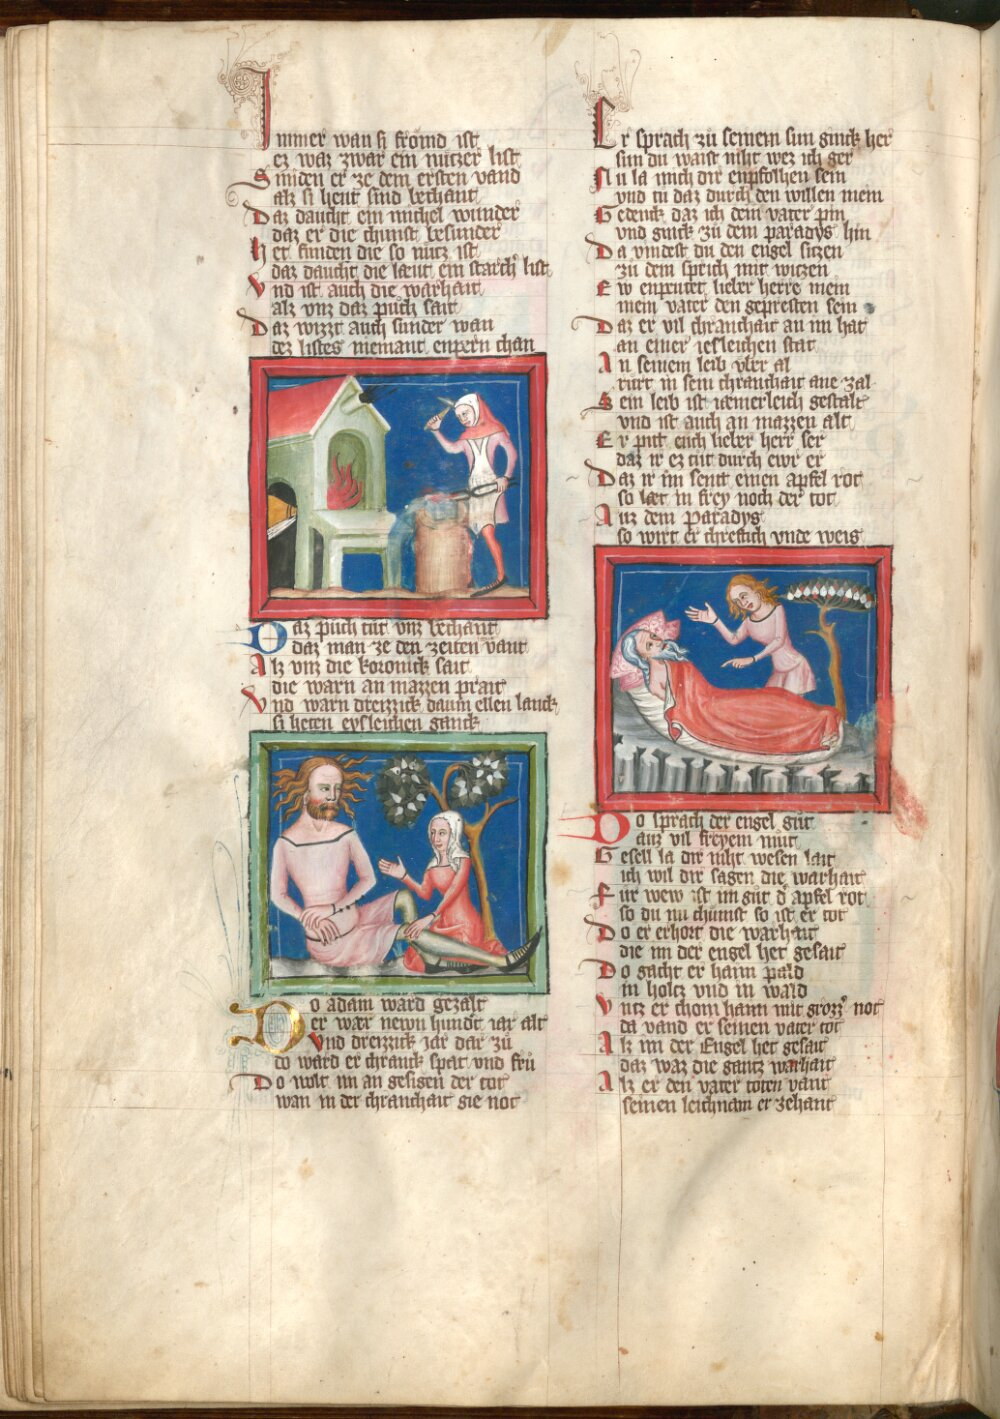 Immer wan si frömd ist
ez waz zwar ein nutzer list
Smiden er ze dem ersten vand
alz si heut sind bechant
Daz daucht ein michel wunder
daz er die chunst besunder
Het funden die so nutz ist
daz daucht die læut ein starch list
Vnd ist auch die warhait
alz vnz daz puch sait
Daz wizzt auch sunder wan
dez listes niemant enpern chan
Daz puch tut vnz bechant
daz man ze den zeiten vant
Alz vnz die koronick sait
die warn an mazzen prait
Vnd warn dreizzick daum ellen lanck
si heten eysleichen ganck
Do adam ward gezalt
er wær newn hundt iar alt
Vnd dreizzick iar dar zu
do ward er chranck spat vnd fru
Do wolt im an gesigen der tot
wan in der chranchait sie not
Er sprach zu seinem sun ginck her
sun du waist niht wez ich ger
Nu la mich dir enpfolhen sein
vnd tu daz durch den willen mein
Gedenck daz ich dein vater pin
vnd ginck zu dem paradys hin
Da vindest du den engel sitzen
zu dem sprich mit witzen
Ew enpeutet lieber herre mein
mein vater den gepresten sein
Daz er vil chranchait an im hat
an einer iesleichen stat
An seinem leib vber al
rurt in sein chranchait ane zal
Sein leib ist iæmerleich gestalt
vnd ist auch an mazzen alt
Er pitt euch lieber herr ser
daz ir ez tut durch ewr er
Daz ir im sent einen apfel rot
so læt in frey noch der tot
Auz dem paradys
so wirt er chreftich vnde weis
Do sprach der engel gut
auz vil freyem mut
Gesell la dir niht wesen lait
ich wil dir sagen die warhait
Fur wew ist im gut d apfel rot
so du nu chumst so ist er tot
Do er erhort die warhait
die im der engel het gesait
Do gacht er haim pald
in holtz vnd in wald
Vntz er chom haim mit grozz not
da vand er seinen vater tot
Alz im der Engel het gesait
daz waz die gantz warhait
Alz er den vater toten vant
seinen leichnam er zehant